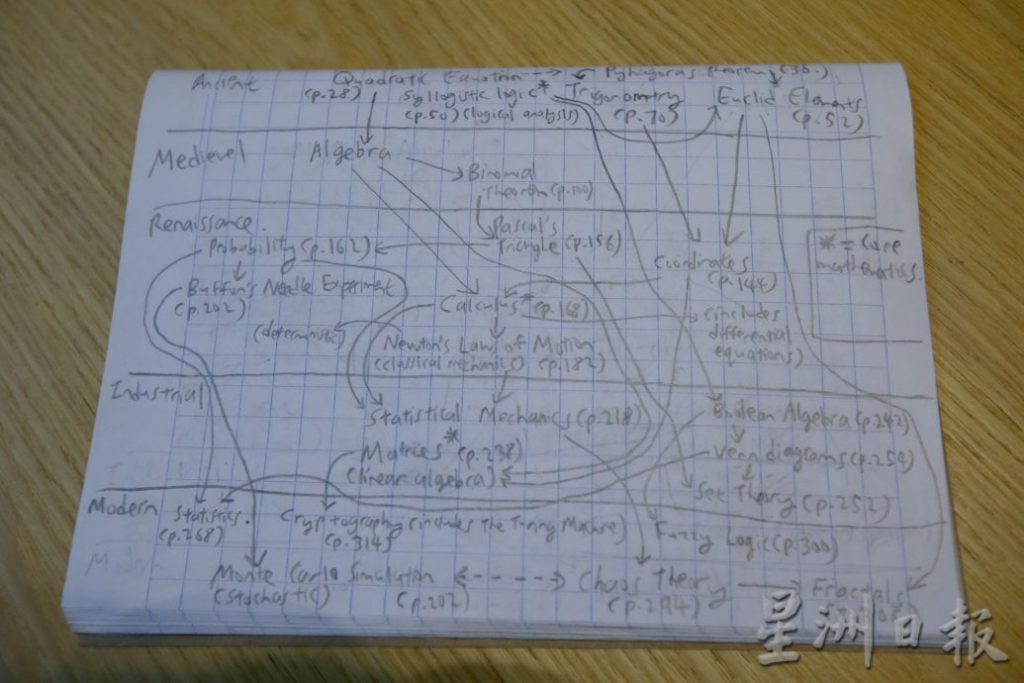 Ancient
Quadratic Equation
(p.28)
Pythagoras Theorem (p.36.)
Syllogistic logic*
(p.50) (logical analysis)
Trigonometry
(p.70)
Euclid Elements
(p.52)
Medievel
Algebra
Binomial
Theorem (p.100)
Renaissance
Pascal's
Triangle (p.156)
Probability (p.162)
Coordinates
(p.144)
* = Core
mathematics.
Buffon's Needle Experiment
(p.202)
Calculus* (p.168)
(includes
differential
equations)
(deterministic)
Newton's Laws of Motion
(classical mechanics) (p.182)
Industrial
Statistical Mechanics (p.218)
Boolean Algebra (p.242)
Matrices* (p.238)
(linear algebra)
Venn diagrams (p.254)
Set Theory (p.252)
Modern
Statistics.
(p.268)
Cryptography (includes The Turing Machine)
(p.314)
Fuzzy Logic (p.300)
Monte Carlo Simulation
(Stochastic)
(p.202)
Chaos Theory
(p.294)
Fractals
星洲日報